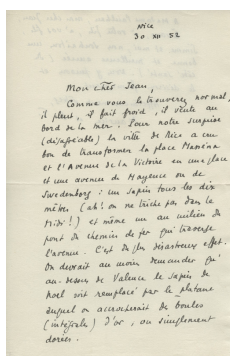 Nice
30 XII 52
Mon cher Jean,
Comme vous le trouverez normal,
il pleut, il fait froid, il vente au
bord de la mer. Pour notre surprise
(désagréable) la ville de Nice a cru
bon de transformer la place Masséna
et l'Avenue de la Victoire en une place
et une avenue de Mayence ou de
Swedenborg : un sapin tous les dix
mètres (ah! on ne triche pas dans le
Midi!) et même un au milieu du
pont du chemin de fer qui traverse
l'avenue. C'est du plus désastreux effet.
On devrait au moins demander qu'
au-dessous de Valence le sapin de
noël soit remplacé par le platane
auquel on accrocherait de boules
(intégrales) d'or, ou simplement
dorées.